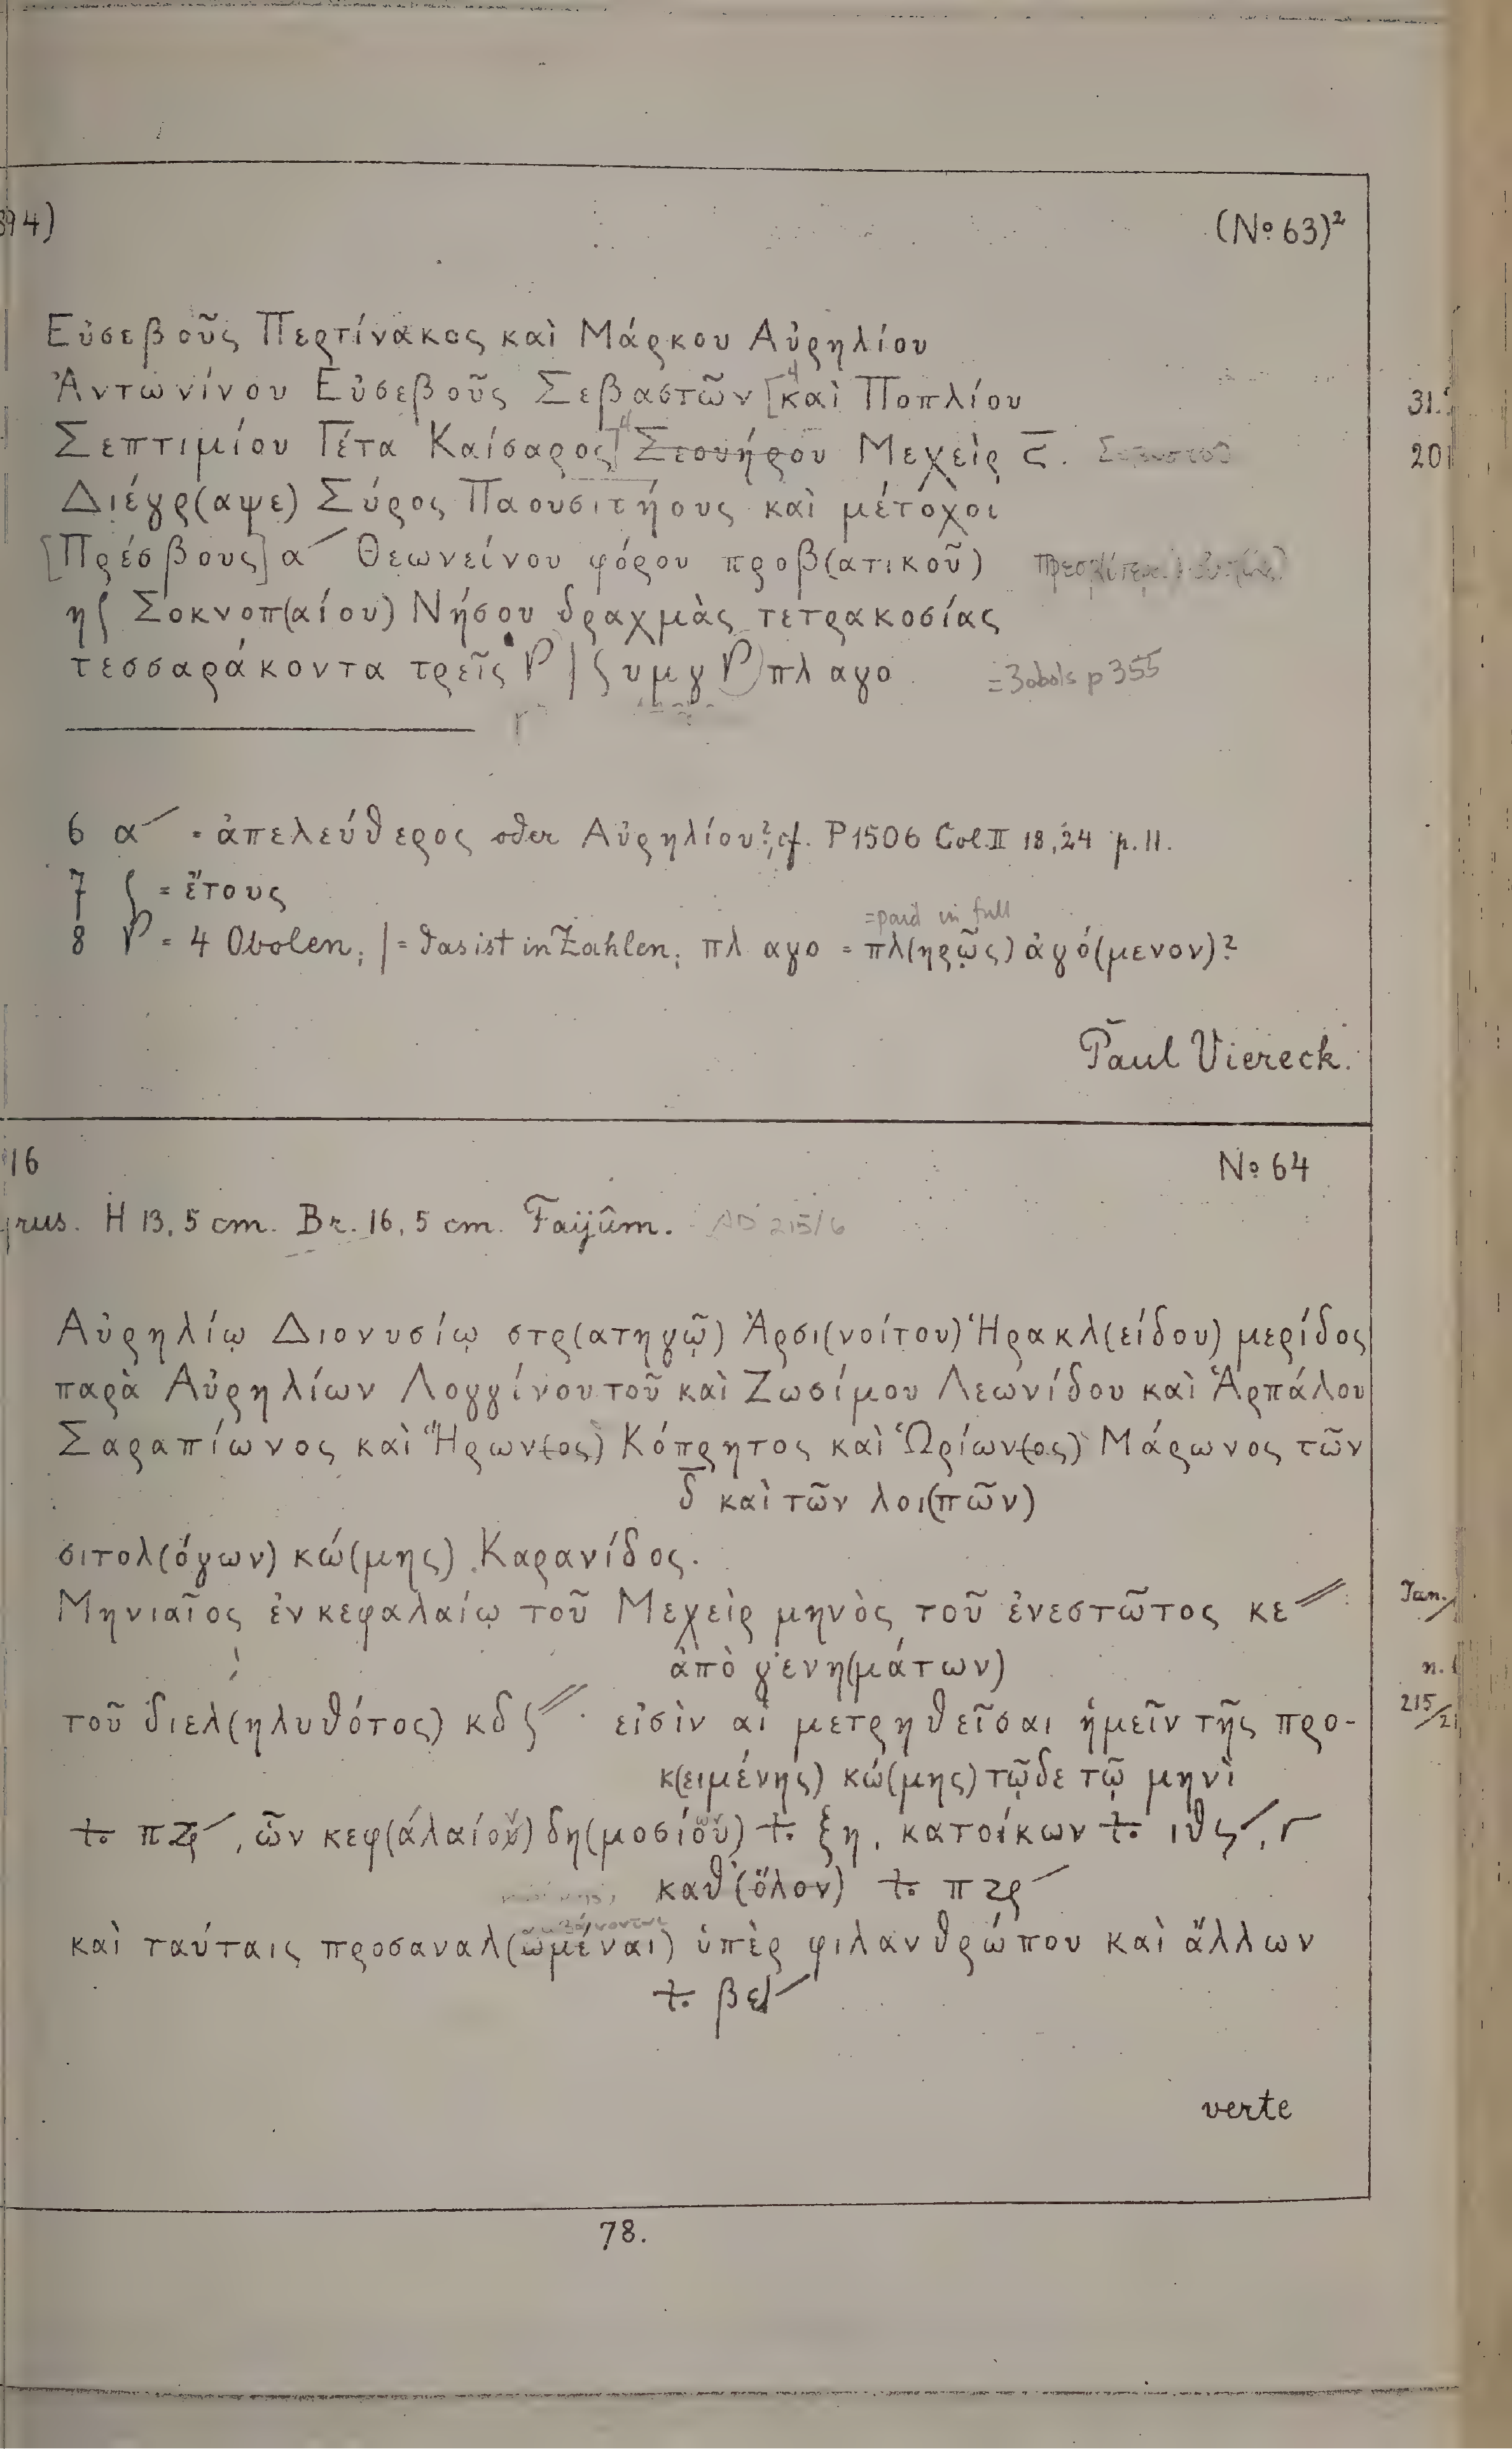 94) (No 63)²
Εὐσεβοῦς Περτίνακος καὶ Μάρκου Αὐρηλίου
Ἀντωνίνου Εὐσεβοῦς Σεβαστῶν [καὶ Ποπλίου 31.
Σεπτιμίου Γέτα Καίσαρος] Σεουήρου Μεχεὶρ ς̅. 20
Διέγρ(αψε) Σύρος Παουσιτήους καὶ μέτοχοι
[Πρέσβους] α´ Θεωνείνου φόρου προβ(ατικοῦ)
ηʃ Σοκνοπ(αίου) Νήσου δραχμὰς τετρακοσίας
τεσσαράκοντα τρεῖς 𐅼 / ʃ υμγ 𐅼 πλ αγο = 3 obols p 355
6 α´ = ἀπελεύθερος oder Αὐρηλίου?, cf. P 1506 Col. II 18, 24 p. 11.
7 ʃ = ἔτους
= paid in full
8 𐅼 = 4 Obolen; / = das ist in Zahlen; πλ αγο = πλ(ηρῶς) ἀγό(μενον)?
Paul Viereck.
16 No 64
rus. H 13,5 cm. Br. 16,5 cm. Faijûm. AD 215/6
Αὐρηλίῳ Διονυσίῳ στρ(ατηγῷ) Ἀρσι(νοίτου) Ἡρακλ(είδου) μερίδος
παρὰ Αὐρηλίων Λογγίνου τοῦ καὶ Ζωσίμου Λεωνίδου καὶ Ἁρπάλου
Σαραπίωνος καὶ Ἥρων(ος) Κόπρητος καὶ Ὡρίων(ος) Μάρωνος τῶν
δ̅ καὶ τῶν λοι(πῶν)
σιτολ(όγων) κώ(μης) Καρανίδος.
Μηνιαῖος ἐν κεφαλαίῳ τοῦ Μεχεὶρ μηνὸς τοῦ ἐνεστῶτος κε// Jan./
ἀπὸ γενη(μάτων) n.
τοῦ διελ(ηλυθότος) κδʃ// εἰσὶν αἱ μετρηθεῖσαι ἡμεῖν τῆς προ- 215/21
κ(ειμένης) κώ(μης) τῷδε τῷ μηνὶ
, ὧν κεφ(άλαίου) δη(μοσίου) ξη, κατοίκων
καθ(όλον)
καὶ ταύταις προσαναλ(ωμέναι) ὑπὲρ φιλανθρώπου καὶ ἄλλων
verte
78.